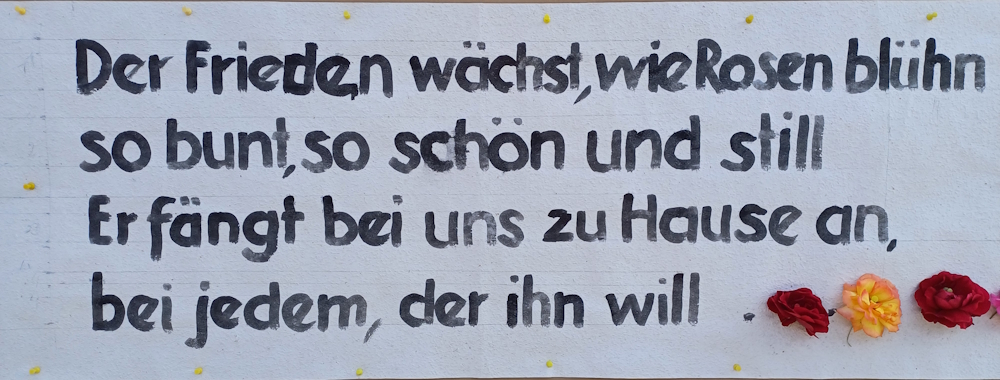 Der Frieden wächst, wie Rosen blühn
so bunt, so schön und still
Er fängt bei uns zu Hause an,
bei jedem, der ihn will .